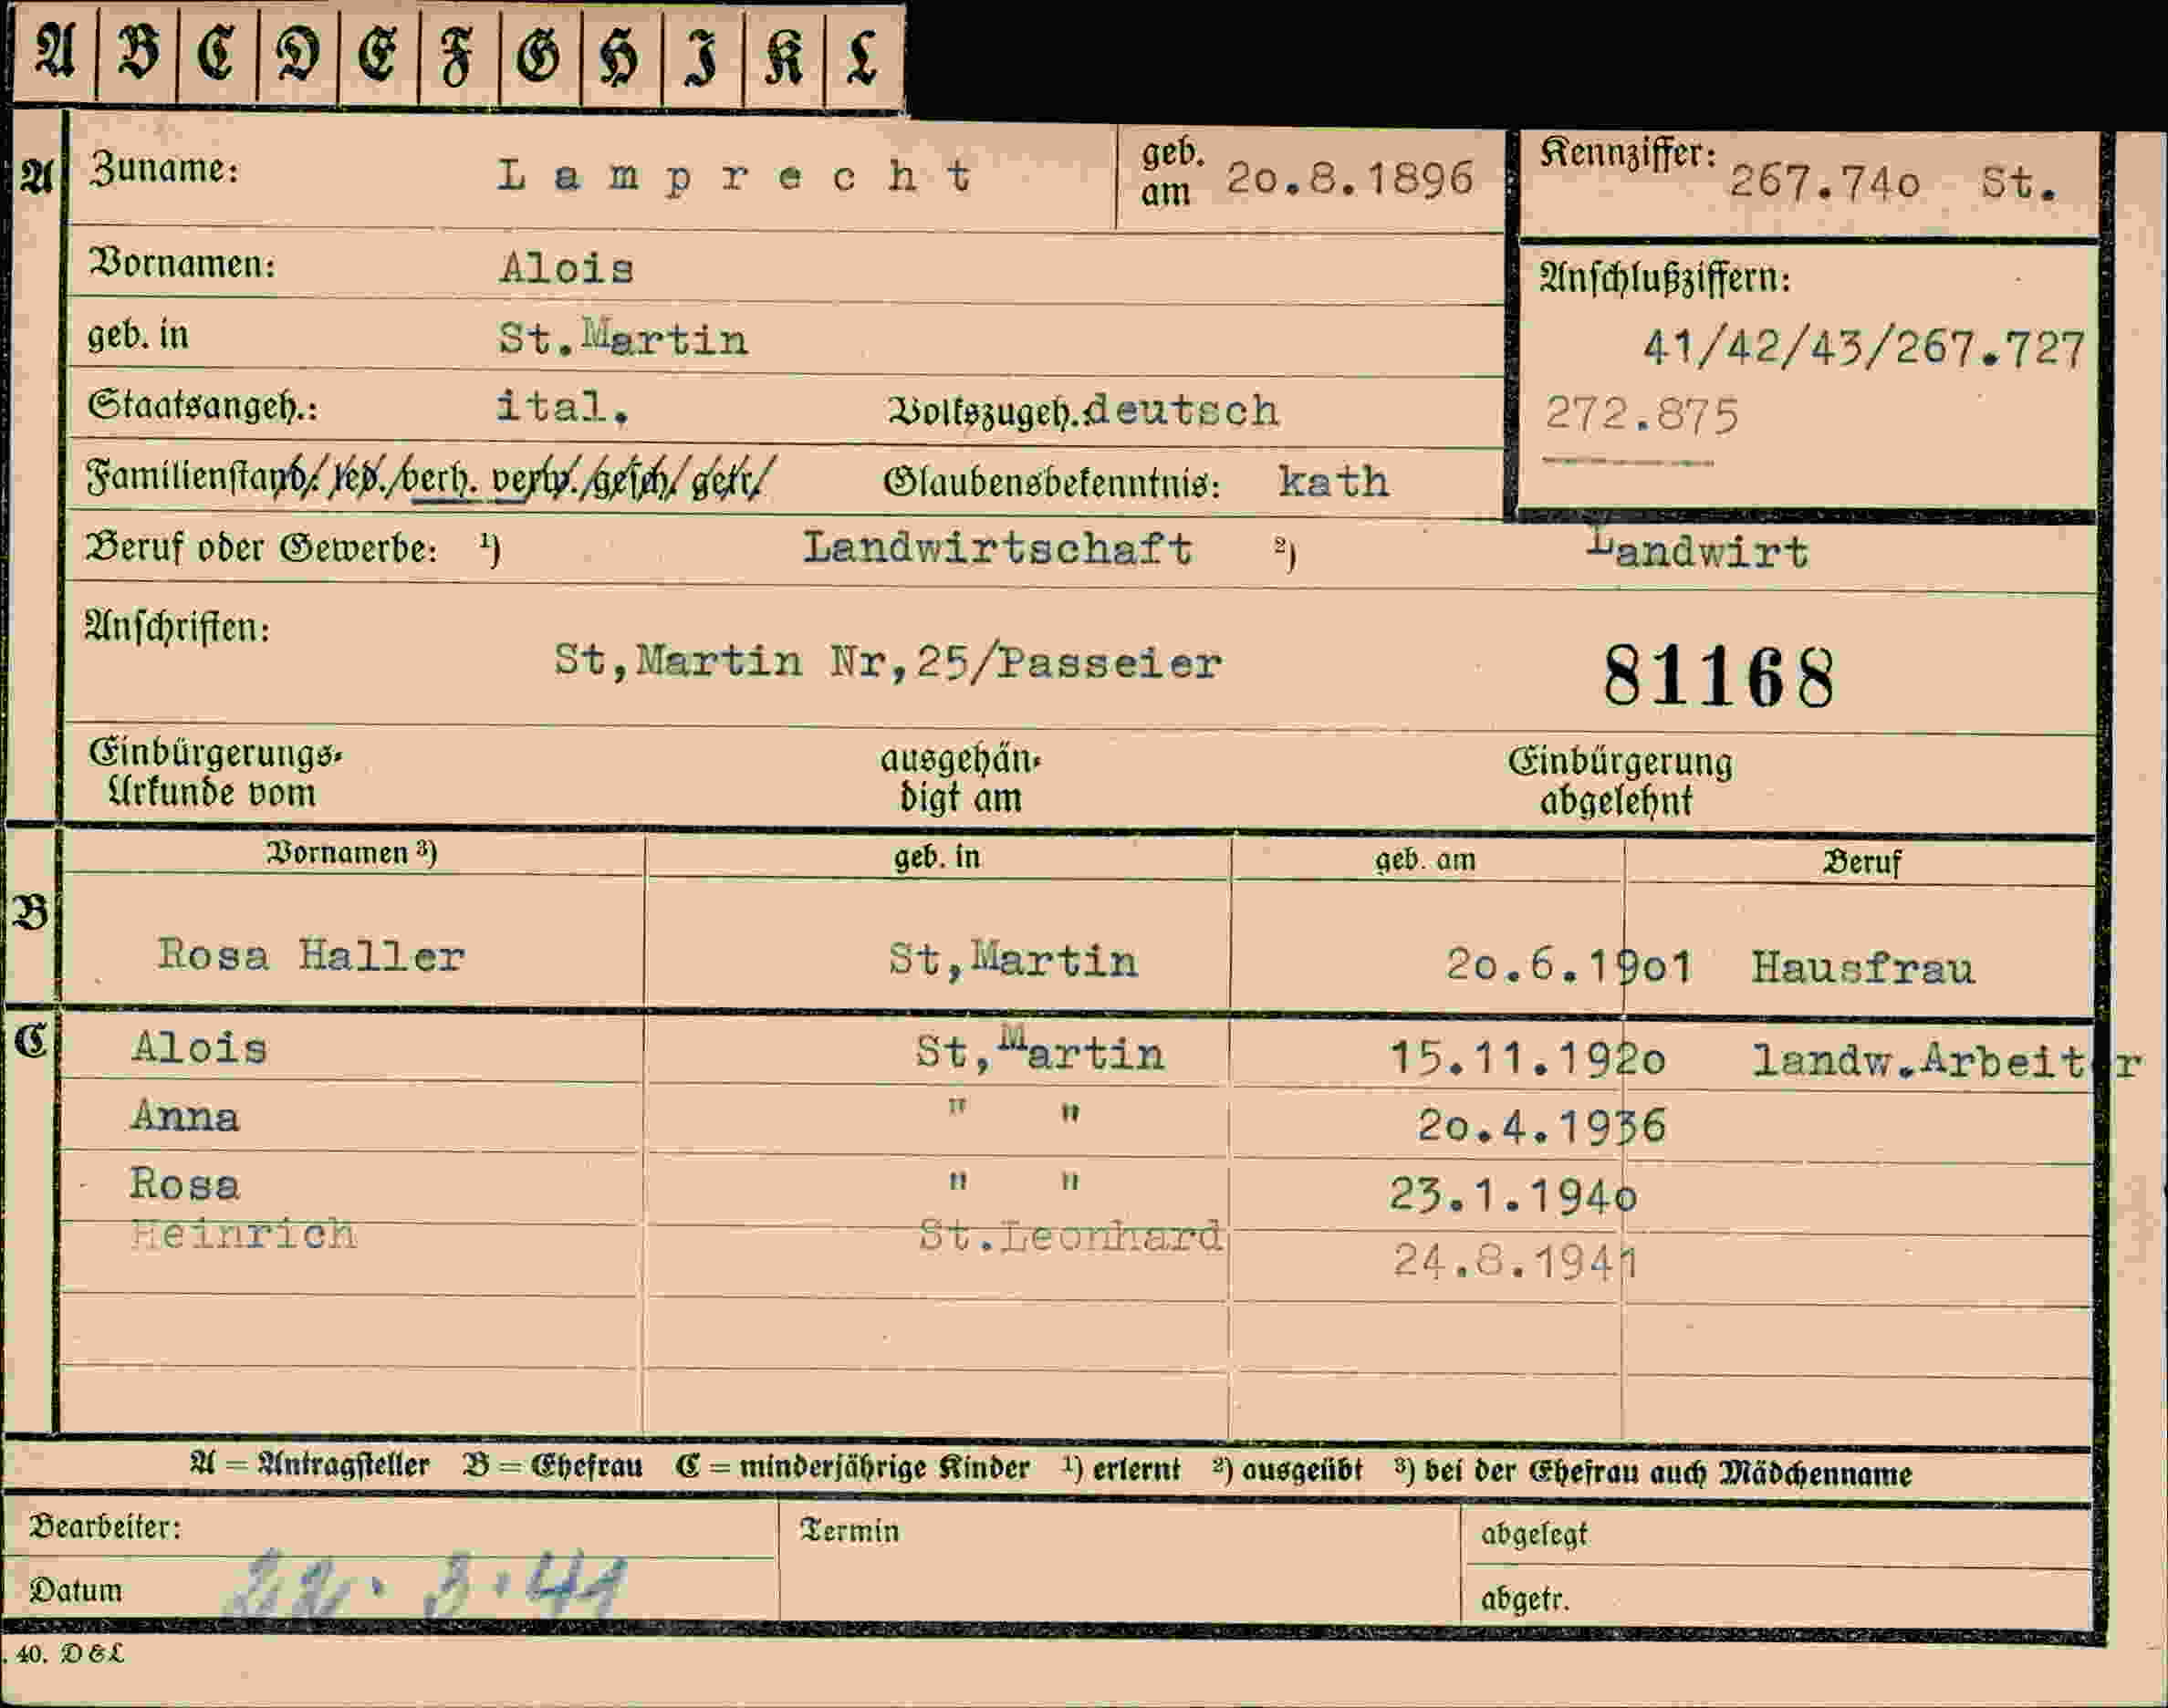 A B C D E F G H I K L
A Zuname: Lamprecht geb. am 2o.8.1896 Kennziffer: 267.74o St.
Vornamen: Alois Anschlußziffern:
geb. in St.Martin 41/42/43/267.727
Staatsangeh.: ital. Volkszugeh. deutsch 272.875
Familienstand: led. verh. verw. gesch. getr. Glaubensbekenntnis: kath
Beruf oder Gewerbe: ¹) Landwirtschaft ²) Landwirt
Anschriften: St,Martin Nr,25/Passeier 81168
Einbürgerungs- ausgehän- Einbürgerung
Urkunde vom digt am abgelehnt
Vornamen ³) geb. in geb. am Beruf
B Rosa Haller St,Martin 2o.6.19o1 Hausfrau
C Alois St,Martin 15.11.192o landw.Arbeiter
Anna " " 2o.4.1936
Rosa " " 23.1.194o
Heinrich St.Leonhard 24.8.1941
A = Antragsteller B = Ehefrau C = minderjährige Kinder ¹) erlernt ²) ausgeübt ³) bei der Ehefrau auch Mädchenname
Bearbeiter: Termin abgelegt
Datum 22.3.41 abgetr.
. 40. D&L